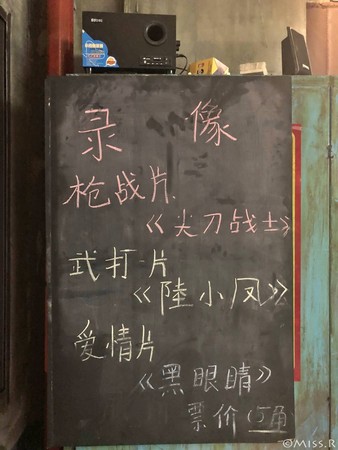 录 像
枪战片
《尖刀战士》
武打片
《陸小凤》
爱情片
《黑眼睛》
票价 5角
©Miss.R